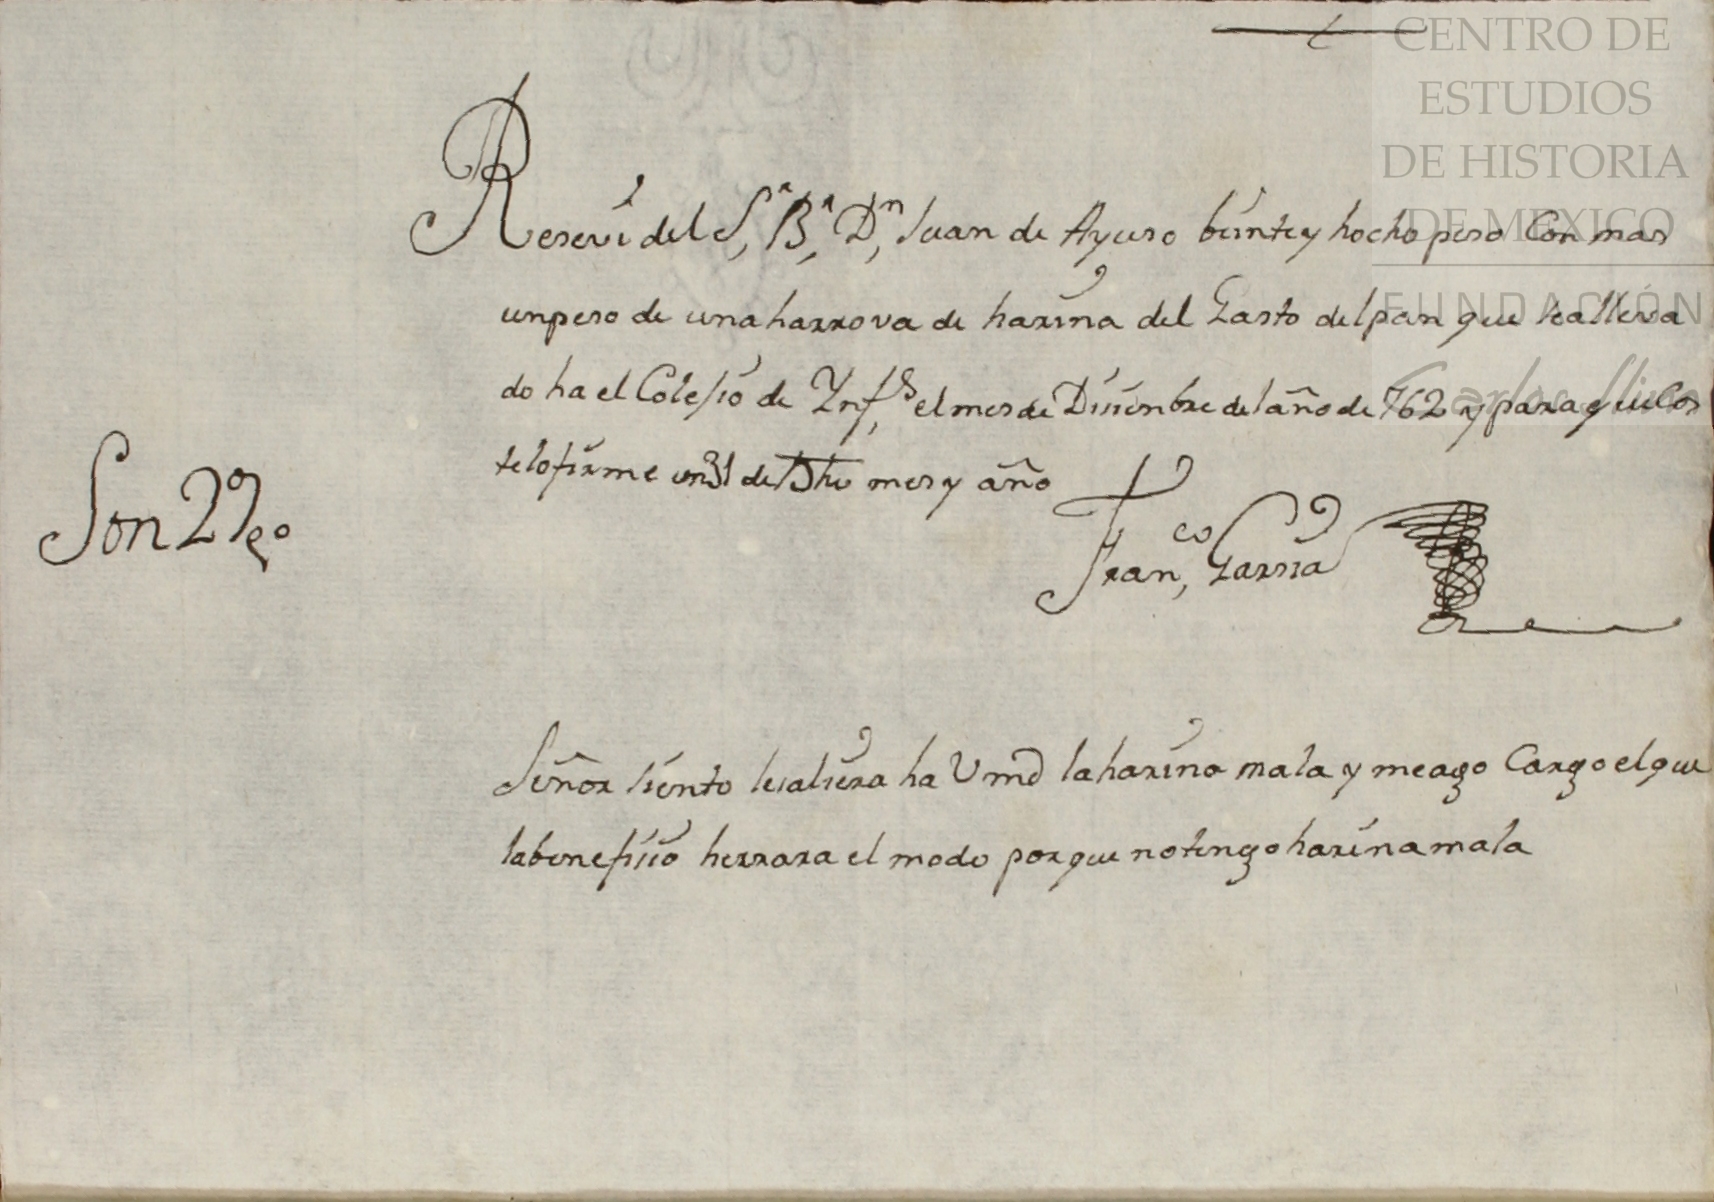 CENTRO DE
ESTUDIOS
DE HISTORIA
DE MEXICO
FUNDACIÓN
Carlos Slim
Resevi del S.r B.r D.n Juan de Ayuso beinte y hocho peso Con mas
un peso de una harrova de harina del Gasto del pan que se a lleva
do ha el Colesio de Ynf.s el mes de Disienbre del año de 762 y para que Cos
te lo firme en 31 de Dho mes y año
Son 29 p.o
Fran.co Garsia
Señor siento le saliera ha Vmd la harina mala y me ago Cargo el que
la benefisio herrara el modo porque no tengo harina mala